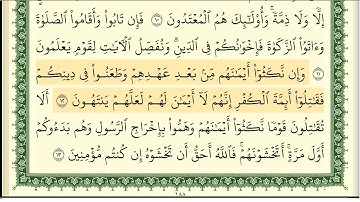 إِلًّا وَلَا ذِمَّةً ۚ وَأُو۟لَـٰٓئِكَ هُمُ ٱلْمُعْتَدُونَ ١٠ فَإِن تَابُوا۟ وَأَقَامُوا۟ ٱلصَّلَوٰةَ
وَءَاتَوُا۟ ٱلزَّكَوٰةَ فَإِخْوَٰنُكُمْ فِى ٱلدِّينِ ۗ وَنُفَصِّلُ ٱلْـَٔايَـٰتِ لِقَوْمٍ يَعْلَمُونَ
١١ وَإِن نَّكَثُوٓا۟ أَيْمَـٰنَهُم مِّنۢ بَعْدِ عَهْدِهِمْ وَطَعَنُوا۟ فِى دِينِكُمْ
فَقَـٰتِلُوٓا۟ أَئِمَّةَ ٱلْكُفْرِ ۙ إِنَّهُمْ لَآ أَيْمَـٰنَ لَهُمْ لَعَلَّهُمْ يَنتَهُونَ ١٢ أَلَا
تُقَـٰتِلُونَ قَوْمًا نَّكَثُوٓا۟ أَيْمَـٰنَهُمْ وَهَمُّوا۟ بِإِخْرَاجِ ٱلرَّسُولِ وَهُم بَدَءُوكُمْ
أَوَّلَ مَرَّةٍ ۚ أَتَخْشَوْنَهُمْ ۚ فَٱللَّهُ أَحَقُّ أَن تَخْشَوْهُ إِن كُنتُم مُّؤْمِنِينَ ١٣
١٨٨